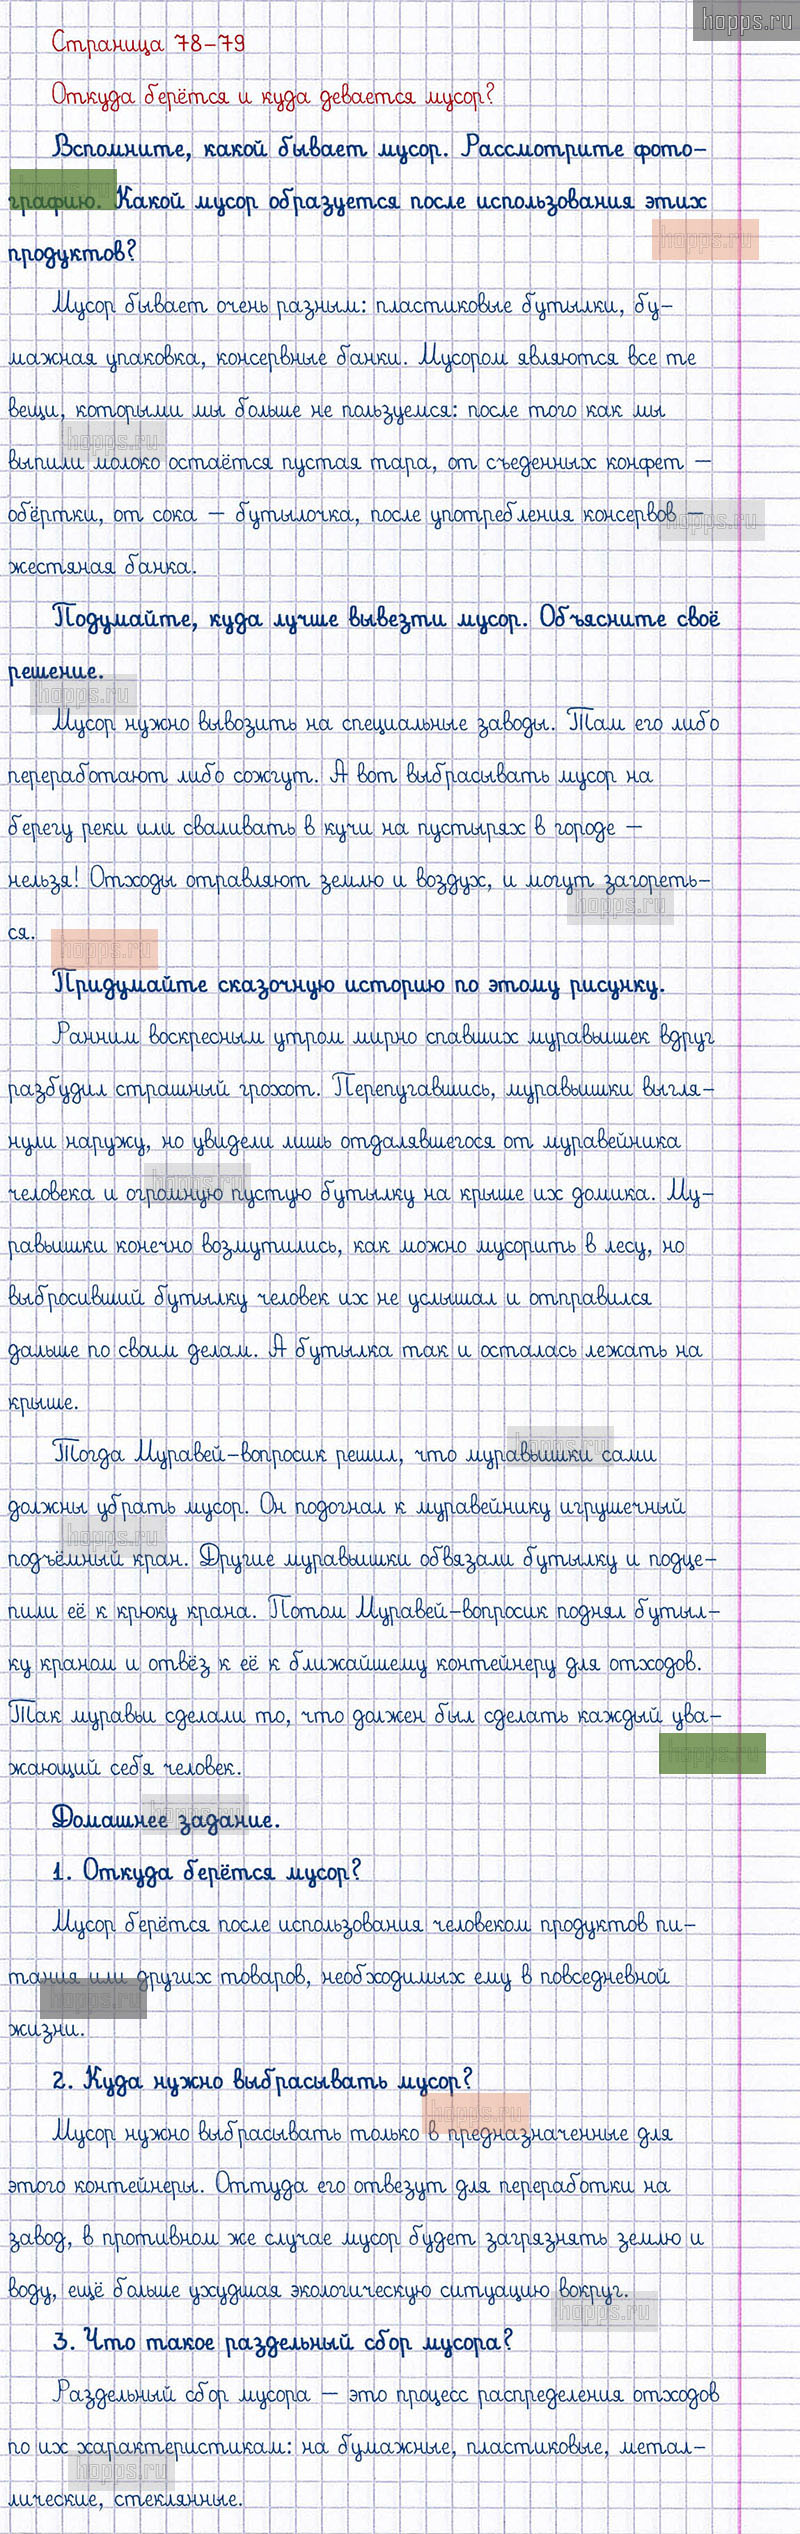 hopps.ru
Страница 78-79
Откуда берётся и куда девается мусор?
Вспомните, какой бывает мусор. Рассмотрите фото-
графию. Какой мусор образуется после использования этих
hopps.ru
продуктов?
Мусор бывает очень разным: пластиковые бутылки, бу-
мажная упаковка, консервные банки. Мусором являются все те
вещи, которыми мы больше не пользуемся: после того как мы
hopps.ru
выпили молоко остаётся пустая тара, от съеденных конфет –
обёртки, от сока – бутылочка, после употребления консервов –
hopps.ru
жестяная банка.
Подумайте, куда лучше вывезти мусор. Объясните своё
решение.
hopps.ru
Мусор нужно вывозить на специальные заводы. Там его либо
переработают либо сожгут. А вот выбрасывать мусор на
берегу реки или сваливать в кучи на пустырях в городе –
нельзя! Отходы отравляют землю и воздух, и могут загореть-
hopps.ru
ся.
hopps.ru
Придумайте сказочную историю по этому рисунку.
Ранним воскресным утром мирно спавших муравьишек вдруг
разбудил страшный грохот. Перепугавшись, муравьишки выгля-
нули наружу, но увидели лишь отдалявшегося от муравейника
hopps.ru
человека и огромную пустую бутылку на крыше их домика. Му-
равьишки конечно возмутились, как можно мусорить в лесу, но
выбросивший бутылку человек их не услышал и отправился
дальше по своим делам. А бутылка так и осталась лежать на
крыше.
hopps.ru
Тогда Муравей-вопросик решил, что муравьишки сами
должны убрать мусор. Он подогнал к муравейнику игрушечный
hopps.ru
подъёмный кран. Другие муравьишки обвязали бутылку и подце-
пили её к крюку крана. Потом Муравей-вопросик поднял бутыл-
ку краном и отвёз к её к ближайшему контейнеру для отходов.
Так муравьи сделали то, что должен был сделать каждый ува-
hopps.ru
жающий себя человек.
hopps.ru
Домашнее задание.
1. Откуда берётся мусор?
Мусор берётся после использования человеком продуктов пи-
тания или других товаров, необходимых ему в повседневной
hopps.ru
жизни.
2. Куда нужно выбрасывать мусор?
hopps.ru
Мусор нужно выбрасывать только в предназначенные для
этого контейнеры. Оттуда его отвезут для переработки на
завод, в противном же случае мусор будет загрязнять землю и
воду, ещё больше ухудшая экологическую ситуацию вокруг.
hopps.ru
3. Что такое раздельный сбор мусора?
Раздельный сбор мусора – это процесс распределения отходов
по их характеристикам: на бумажные, пластиковые, метал-
hopps.ru
лические, стеклянные.